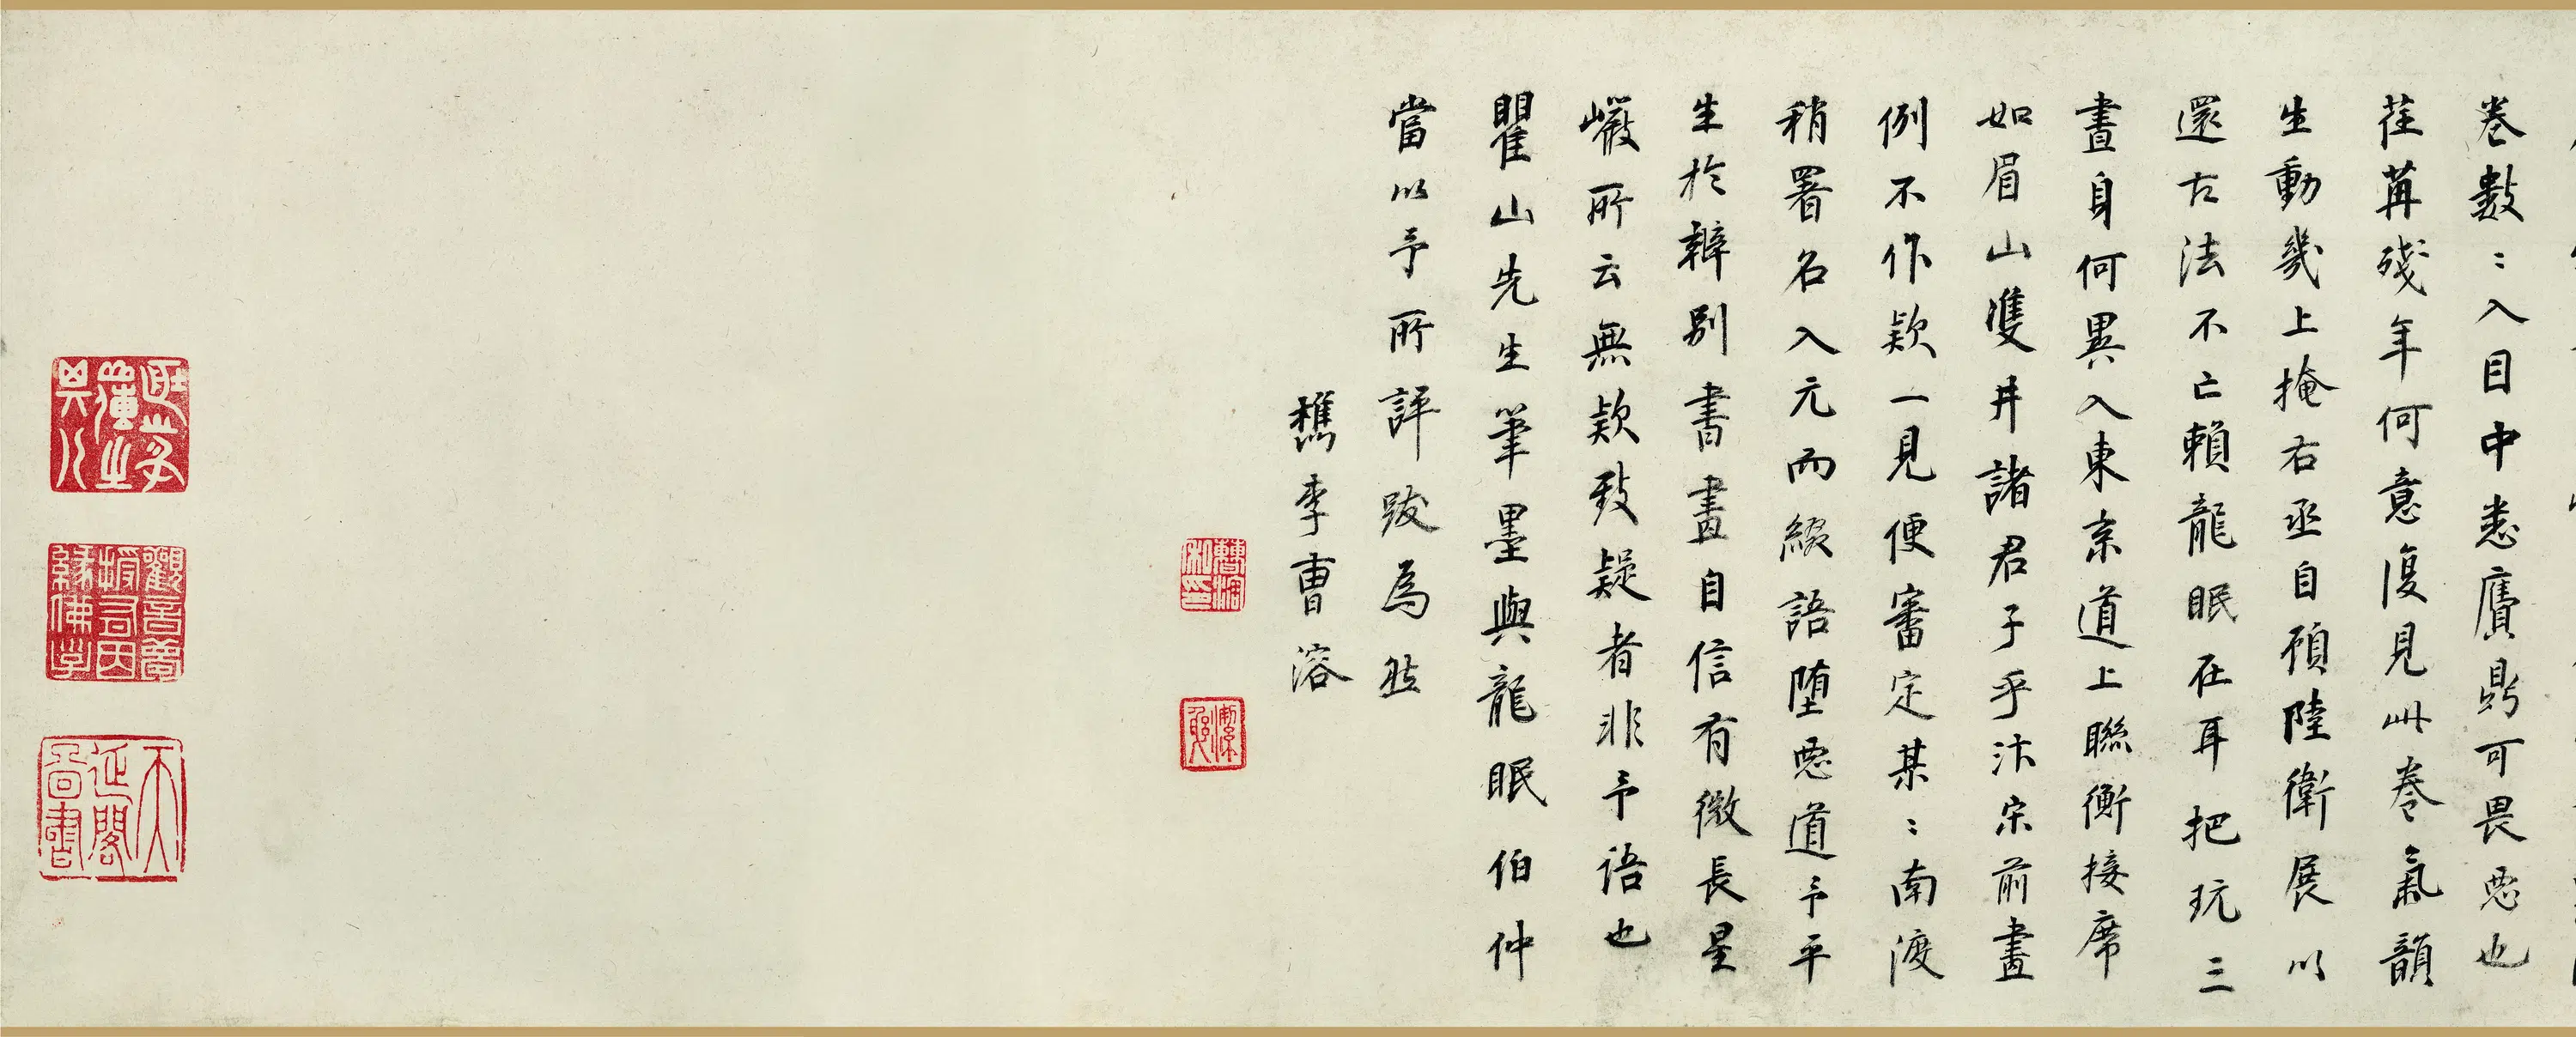 卷數〻入目中悉贗鼎可畏惡也
荏苒殘年何意復見此卷氣韻
生動幾上掩右丞自顧陸衛展以
還古法不亡賴龍眠在耳把玩三
晝身何異入東京道上聯衡接席
如眉山雙井諸君子乎汴宋前畫
例不作欵一見便審定某〻南渡
稍署名入元而綴語墮惡道予平
生於辨別書畫自信有微長星
巖所云無欵致疑者非予語也
瞿山先生筆墨與龍眠伯仲
當以予所評跋為然
檇李曹溶
曹溶私印
潔躬
天延閣圖書